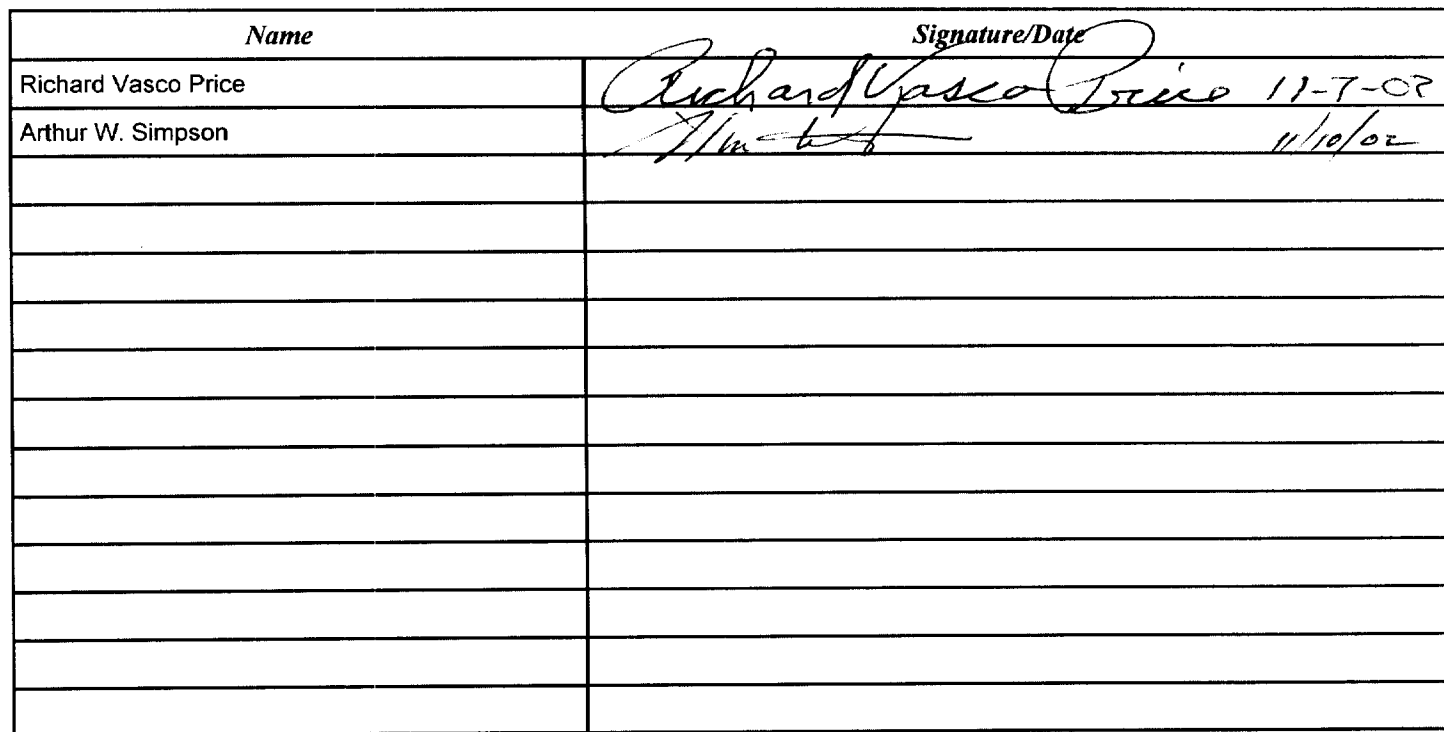 Name Signature/Date
Richard Vasco Price Richard Vasco Price 11-7-02
Arthur W. Simpson 11/10/02